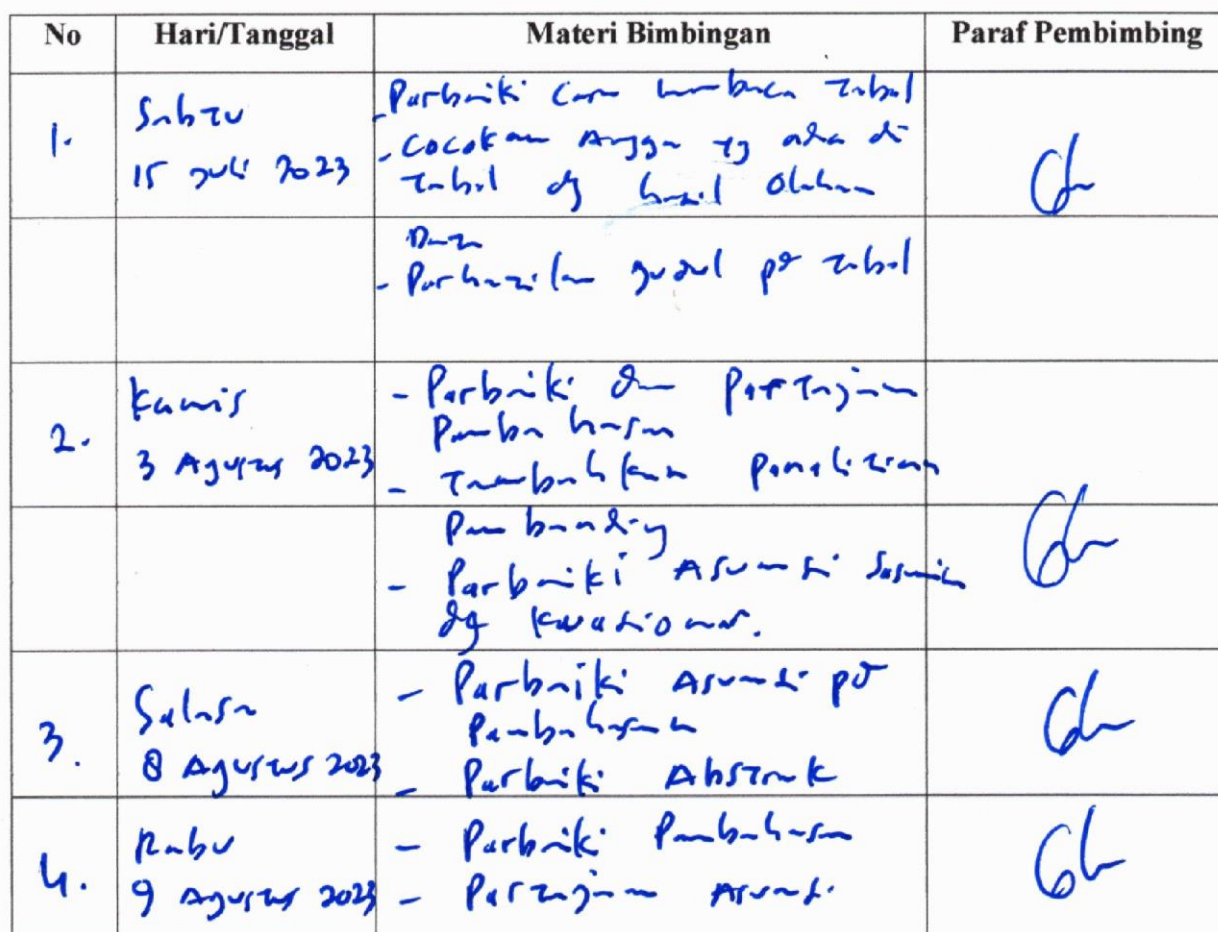 No Hari/Tanggal Materi Bimbingan Paraf Pembimbing
1. Sabtu
15 Juli 2023
- Perbaiki cara membaca tabel
- Cocokan Angga yg ada di
tabel dg hasil Olahan
Data
- Perhatikan judul pd tabel
2. Kamis
3 Agustus 2023
- Perbaiki dan Pertajam
Pembahasan
- Tambahkan Penelitian
Pembanding
- Perbaiki Asumsi Sesuai
dg kuesioner.
3. Selasa
8 Agustus 2023
- Perbaiki Asumsi pd
Pembahasan
- Perbaiki Abstrak
4. Rabu
9 Agustus 2023
- Perbaiki Pembahasan
- Pertajam Asumsi